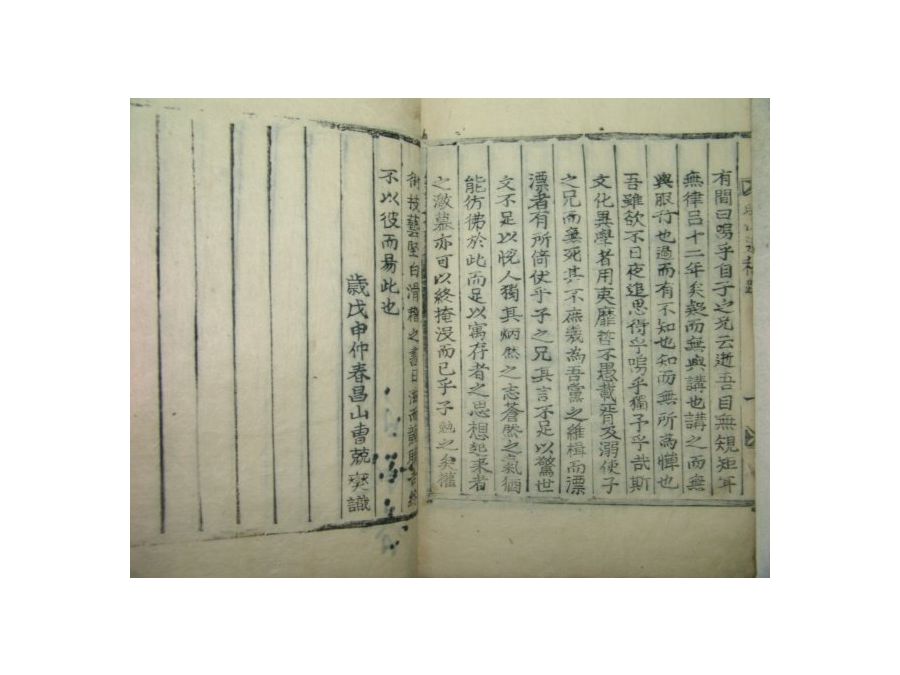 有間曰嗚乎自子之兄云逝吾目無規矩耳
無律呂十二年矣疑而無與講也講之而無
與服行也過而有不知也知而無所爲憚也
吾雖欲不日夜追思得乎嗚乎獨子乎哉斯
文化異學者用夷靡哲不愚載胥及溺使子
之兄而無死其不庶幾為吾黨之維楫而漂
漂者有所倚仗乎子之兄其言不足以驚世
文不足以悅人獨其炳然之志蒼然之氣猶
能仿彿於此而足以寓存者之思想起來者
之激慕亦可以終掩沒而已乎子勉之矣權
術技藝堅白滑稽之書日
不以彼而易此也
歲戊申仲春昌山曺兢燮識